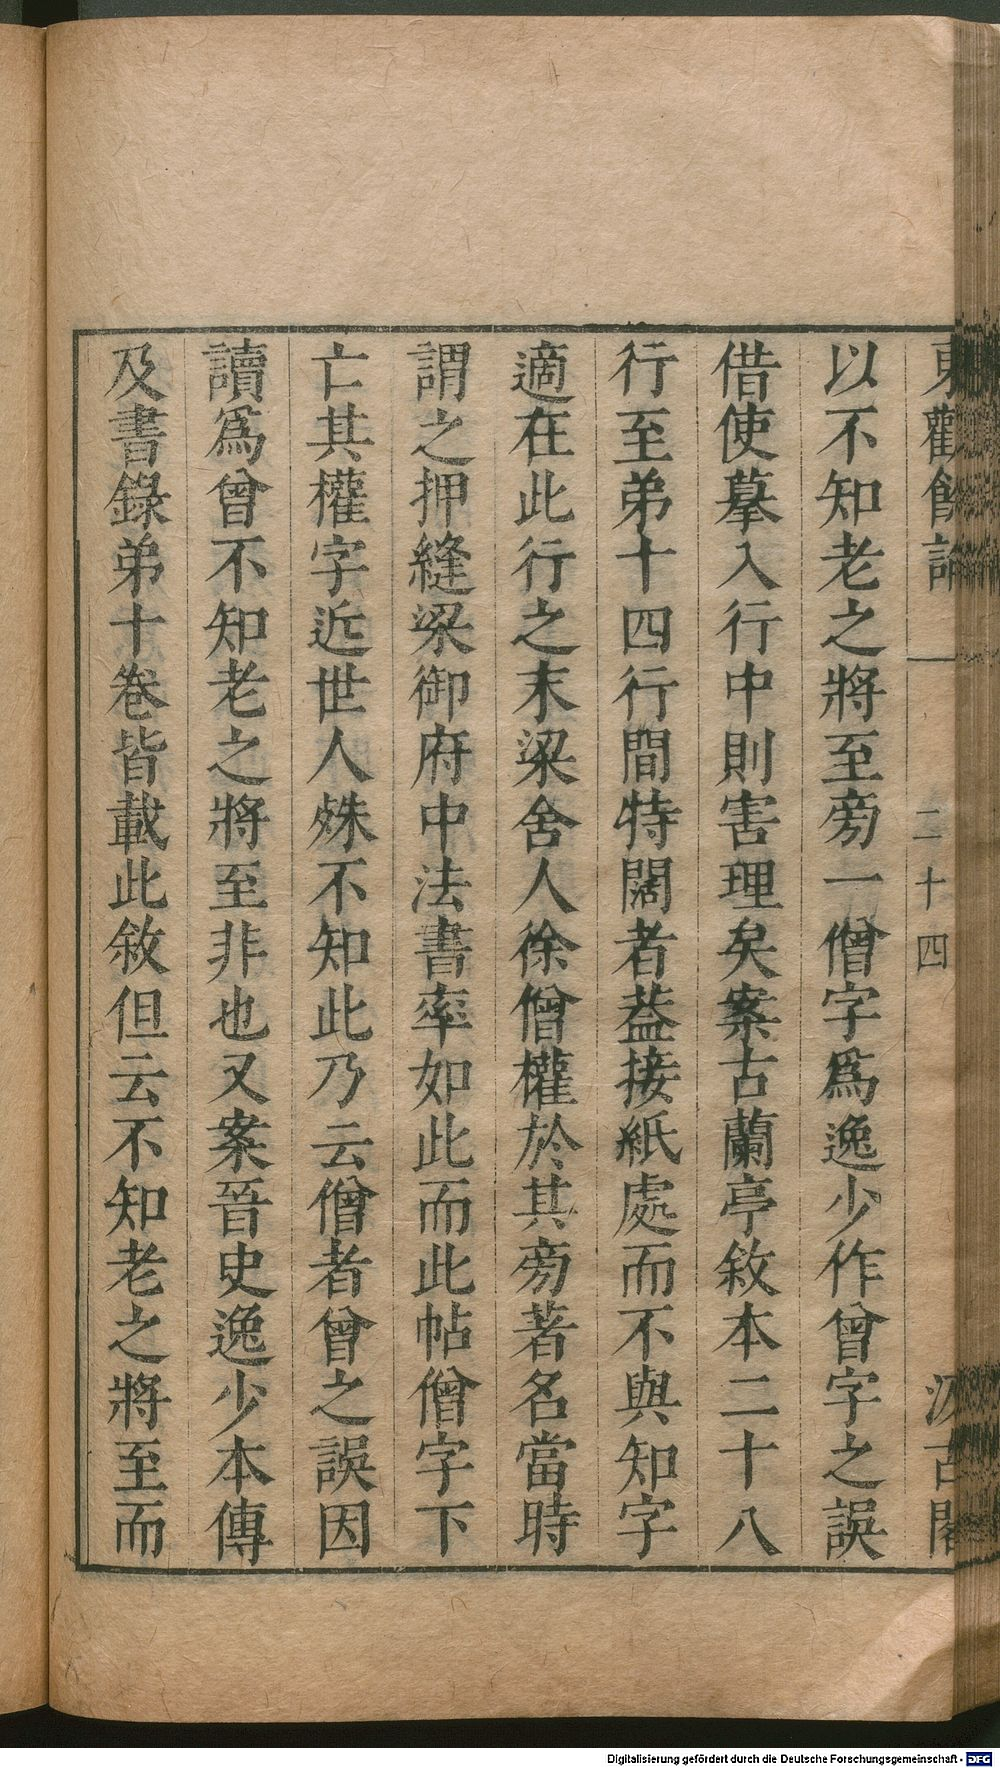 東觀餘論
二十四
汲古閣
以不知老之將至旁一僧字爲逸少作曾字之誤
借使摹入行中則害理矣案古蘭亭敘本二十八
行至弟十四行間特闊者葢接紙處而不與知字
適在此行之末梁舍人徐僧權於其旁著名當時
謂之押縫梁御府中法書率如此而此帖僧字下
亡其權字近世人殊不知此乃云僧者曾之誤因
讀爲曾不知老之將至非也又案晉史逸少本傳
及書錄弟十卷皆載此敘但云不知老之將至而
Digitalisierung gefördert durch die Deutsche Forschungsgemeinschaft - DFG